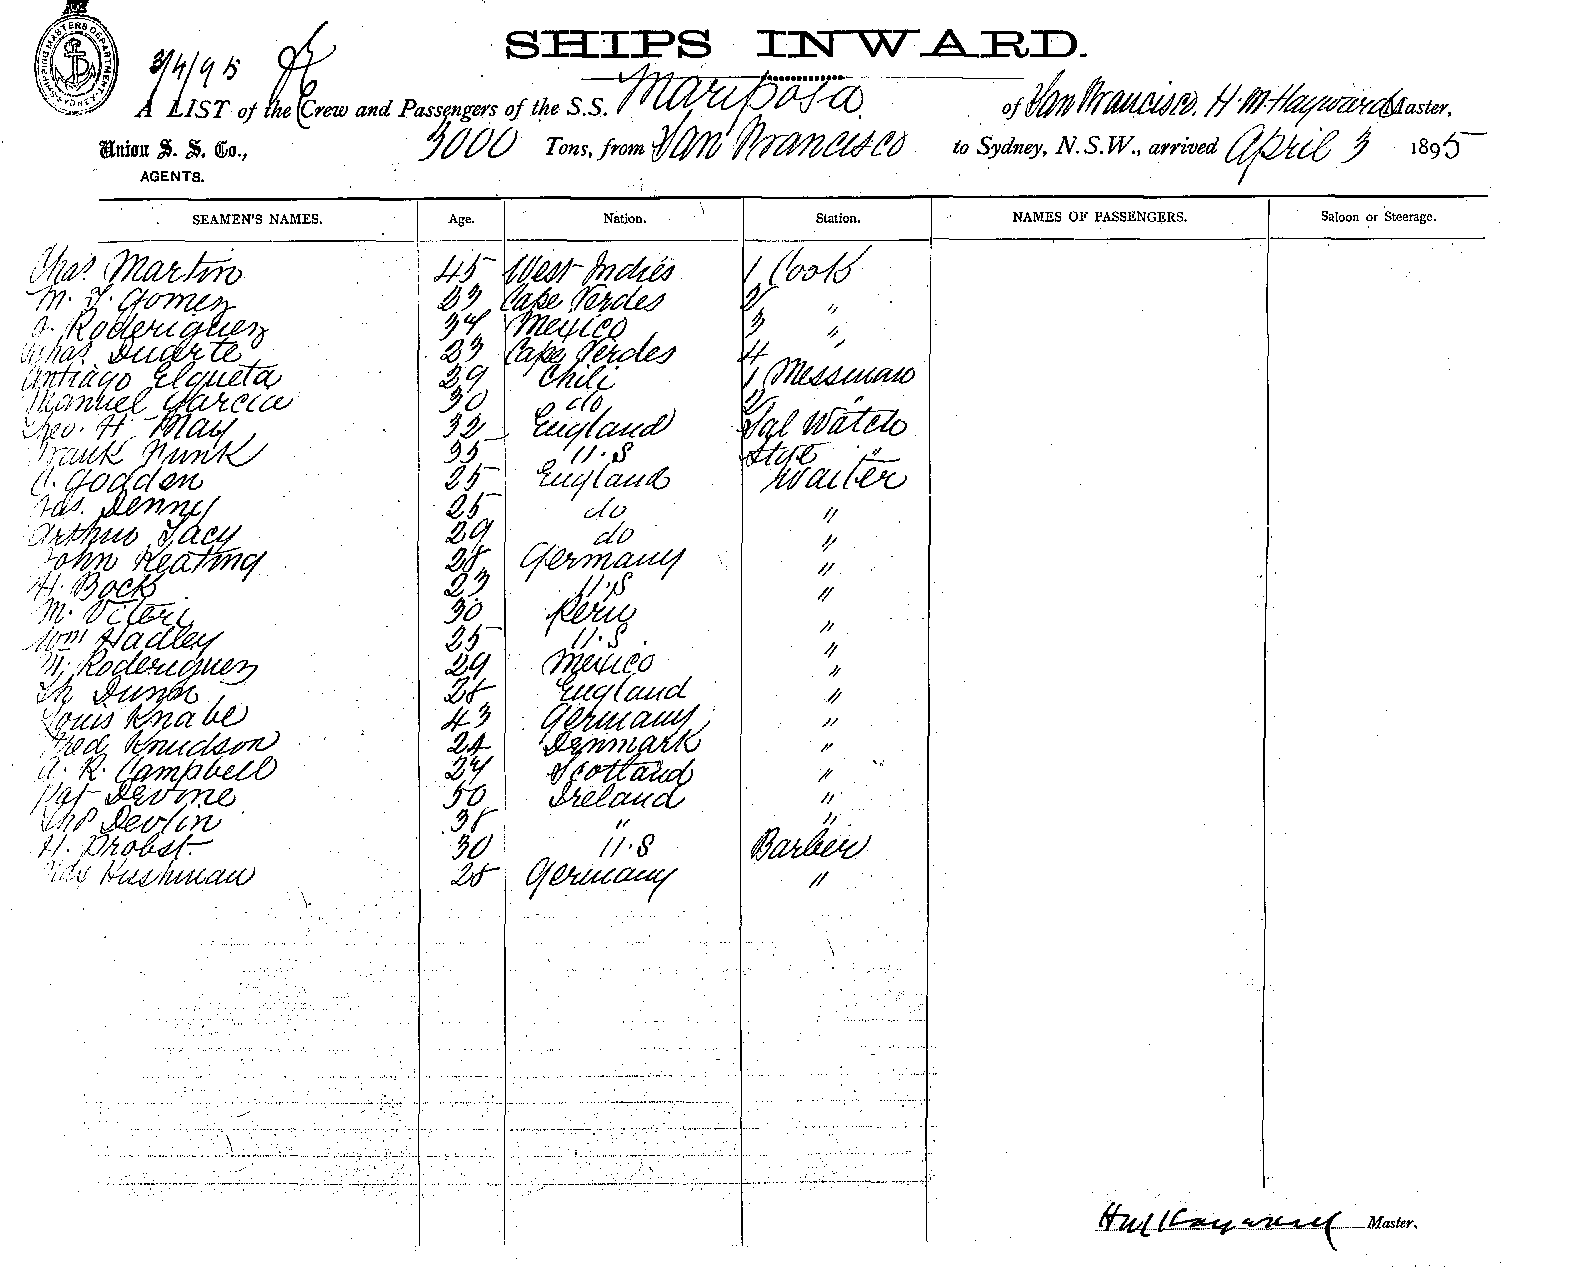 SHIPS INWARD.
3/4/95
A LIST of the Crew and Passengers of the S.S. Mariposa of San Francisco. H. M. Hayward Master,
Union S. S. Co., 3000 Tons, from San Francisco to Sydney, N.S.W., arrived April 3 1895
AGENTS.
SEAMEN'S NAMES. Age. Nation. Station. NAMES OF PASSENGERS. Saloon or Steerage.
Chas Martin 45 West Indies 1 Cook
M. J. Gomez 23 Cape Verdes 2 "
Roderiguez 34 Mexico 3 "
Duarte 23 Cape Verdes 4 "
Antiago Elqueta 29 Chili 1 Messman
Manuel Garcia 30 do 2 "
Geo. H. May 32 England Sal Watch
Frank Nunk 35 U.S Stge "
C. Godden 25 England Waiter
Jas. Denny 25 do "
Arthur Lacy 29 do "
John Keating 28 Germany "
H. Bock 23 U.S "
M. Viteri 30 Peru "
Wm Hadley 25 U.S. "
M. Roderiguez 29 Mexico "
Th Dunn 28 England "
Louis Knabe 43 Germany "
Fred Knudson 24 Denmark "
A. R. Campbell 24 Scotland "
Pat Devine 50 Ireland "
Thos Devlin 38 " "
H. Probst 30 U.S Barber
Hushman 28 Germany "
H M Hayward Master.